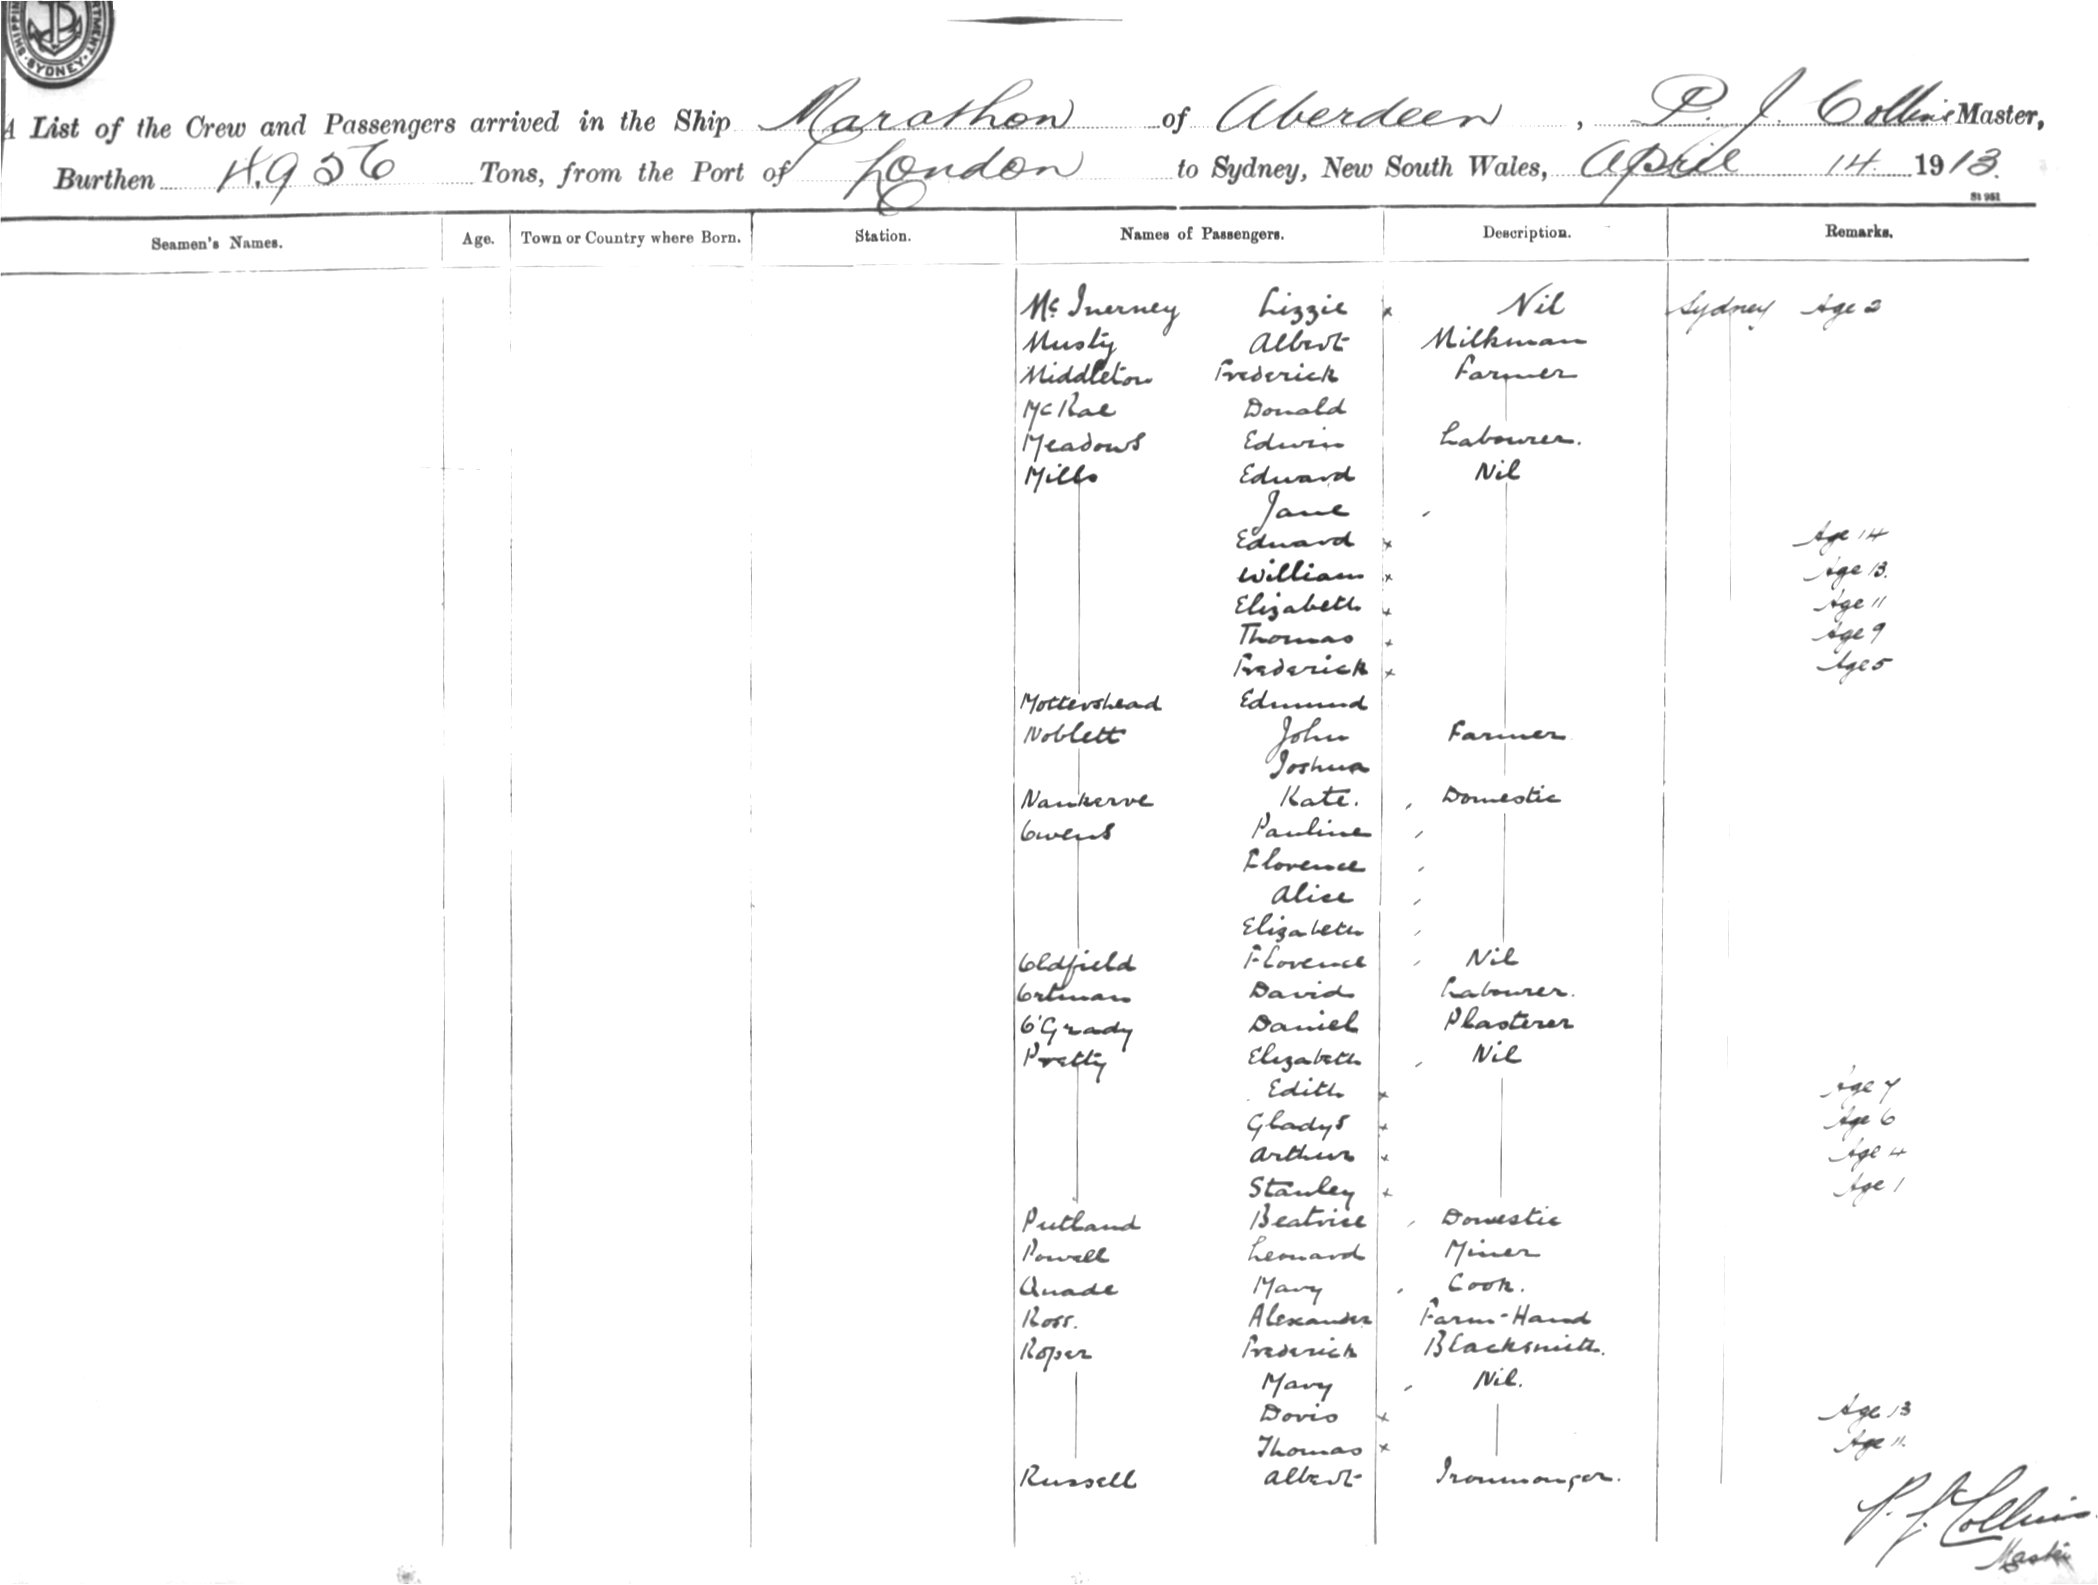 SHIPPING DEPARTMENT SYDNEY
A List of the Crew and Passengers arrived in the Ship Marathon of Aberdeen, P. J. Collins Master,
Burthen Tons, from the Port of London to Sydney, New South Wales, April 14 1913.
St 951
Seamen's Names. Age. Town or Country where Born. Station. Names of Passengers. Description. Remarks.
McInerney Lizzie x Nil Sydney Age 2
Musty Albert Milkman
Middleton Frederick Farmer
McRae Donald
Meadows Edwin Labourer.
Mills Edward Nil
Jane
Edward x Age 14
William x Age 13.
Elizabeth x Age 11
Thomas x Age 9
Frederick x Age 5
Mottershead Edmund
Noblett John Farmer
Joshua
Nankerve Kate. Domestic
Owens Pauline
Florence
Alice
Elizabeth
Oldfield Florence Nil
Ortman David Labourer.
O'Grady Daniel Plasterer
Pretty Elizabeth Nil
Edith x Age 7
Gladys x Age 6
Arthur x Age 4
Stanley x Age 1
Putland Beatrice Domestic
Powell Leonard Miner
Quade Mary Cook.
Ross. Alexander Farm-Hand
Roper Frederick Blacksmith.
Mary Nil.
Doris x Age 13
Thomas x Age 11.
Russell Albert Ironmonger.
P. J. Collins
Master